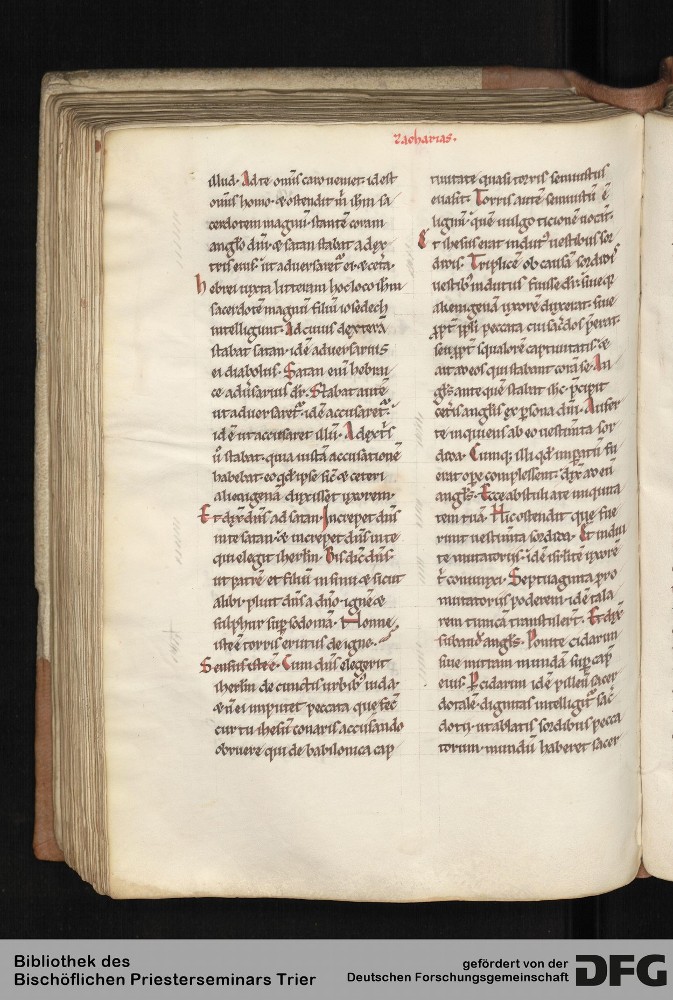 Zacharias.
illud. Ad te om̅is caro veniet. id est
om̅is homo. & ostendit m̅ ih̅m sa
cerdotem magnu̅ stante̅ coram
angl̅o dn̅i. & satan stabat a dex
tris eius. ut adversaret̅ ei. & cet̅a.
Hebrei iuxta litteram hoc loco ih̅m
sacerdote̅ magnu̅ filiu̅ iosedech
intelligunt. Ad cuius dextera̅
stabat satan. ide̅ adversarius
ei diabolus. Satan eni̅ hebrai
ce adu̅sarius dr̅. Stabat aute̅
ut adversaret̅. ide̅ accusaret̅.
ide̅ ut accusaret illu̅. A dext̅s
u̅ stabat. quia iusta̅ accusatione̅
habebat. eo qd̅ ipse sic̅ & ceteri
alienigena̅ duxisset uxorem.
Et dix̅ dn̅s ad satan. Increpet dn̅s
in te satan. & increpet dn̅s in te
qui elegit iherl̅m. Bis dic̅ dn̅s.
ut patre̅ et filiu̅ insinu& sicut
alibi. pluit dn̅s a dn̅o. igne̅ &
sulphur sup̅ sodoma̅. Nonne
iste e̅ torris erutus de igne.
Sensus iste e̅. Cum dn̅s elegerit
iherl̅m de cunctis urbib; iuda.
& n̅ ei imputet peccata que fec̅
cur tu ihesu̅ conaris accusando
obruere qui de babilonica cap
tivitate quasi torris semiustus
evasit. Torris aute̅ semiustu̅ e̅
lignu̅. que̅ vulgo ticione̅ vocat̅.
Et ihesus erat indut; vestibus sor
didis. Triplice̅ ob causa̅ sordidis
vestib; indutus fuisse dr̅. sive q;
alienigena̅ uxore̅ duxerat. sive
p̅p̅t̅ ip̅si peccata cui sac̅dos p̅erat.
seu p̅p̅t̅ squalore̅ captivitatis. &
ait ad eos qui stabant cora̅ se. An
gl̅s ante que̅ stabat ih̅c. p̅cipit
cet̅is angl̅is ex p̅sona dn̅i. Aufer
te inquiens ab eo vestim̅ta sor
dida. Cumq; illi qd̅ imp̅atu̅ fu
erat ope̅ complessent. dix̅ ad eu̅
angl̅s. Ecce abstuli a te iniquita
tem tua̅. Hic ostendit que fue
runt vestim̅ta sordida. Et indui
te mutatoriis. ide̅ isr̅lite̅ uxore̅
t̅ coniunxi. Septuaginta pro
mutatoriis poderem. ide̅ tala
rem tunica̅ transtuler̅t. Et dix̅
subaud̅ angl̅s. Ponite cidarim
sive mitram munda̅ sup̅ cap̅
eius. P̅ cidarim ide̅ pilleu̅ sacer
dotale̅. dignitas intelligit̅ sac̅
dotii. ut ablatis sordibus pecca
torum. mundu̅ haberet sacer
Bibliothek des
Bischöflichen Priesterseminars Trier
gefördert von der
Deutschen Forschungsgemeinschaft
DFG